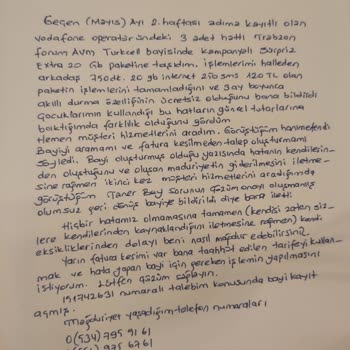 Geçen (Mayıs) Ayı 2. haftası adıma kayıtlı olan
vodafone operatöründeki 3 adet hattı Trabzon
forum AVM Turkcell bayisinde kampanyalı Sürpriz
Extra 20 Gb paketine taşıdım. İşlemlerimi halleden
arkadaş 750dk. 20 gb internet 250 sms 120 TL olan
paketin işlemlerini tamamladığını ve 3 ay boyunca
akıllı durma özelliğinin ücretsiz olduğunu bana bildirdi
Çocuklarımın kullandığı bu hatların güncel tutarlarına
baktığımda farklılık olduğunu gördüm
Hemen müşteri hizmetlerini aradım. Görüştüğüm hanımefendi
Bayiyi aramamı ve fatura kesilmeden talep oluşturmamı
söyledi. Bayi oluşturmuş olduğu yazısında hatanın kendilerin-
den oluştuğunu ve oluşan maduriyetin giderilmesini iletme-
sine rağmen ikinci kez müşteri hizmetlerini aradığımda
görüştüğüm Taner Bey sorunun çözüm onayı oluşmamış
olumsuz geri dönüş bayiye bildirildi diye bana iletti
Hiçbir hatamız olmamasına tamamen (kendisi zaten siz
lere kendilerinden kaynaklandığını iletmesine rağmen) kendi
eksikliklerinden dolayı beni nasıl mağdur edebilirsiniz.
Yarın fatura kesimi var bana taahhüt edilen tarifeyi kullan-
mak ve hata yapan bayi için gereken işlemin yapılmasını
istiyorum. Lütfen çözüm sağlayın.
191742631 numaralı talebim konusunda bayi kayıt
açmış.
Mağduriyet yaşadığım telefon numaraları
0(534) 795 91 61
975 67 61